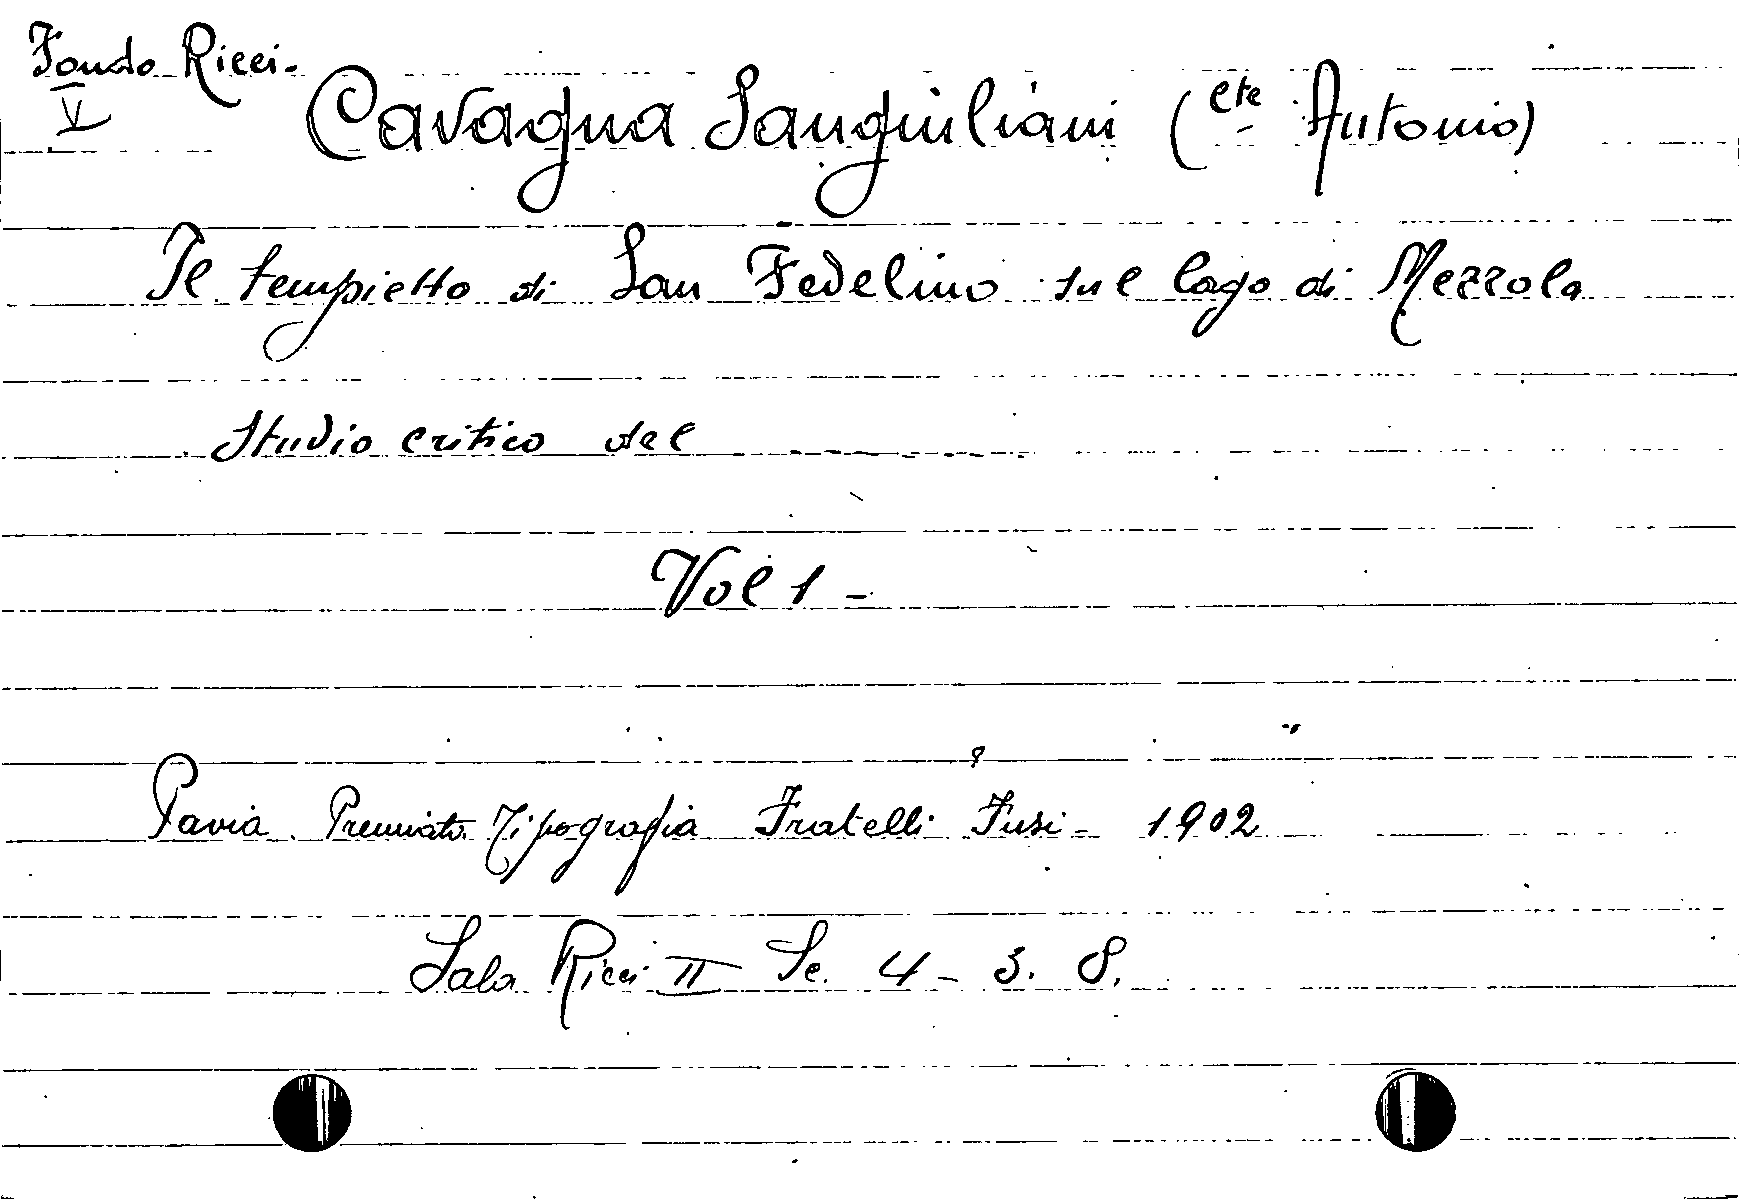 Fondo Ricci.
V
Cavagna Sangiuliani (Cte Antonio)
Il tempietto di San Fedelino sul lago di Mezzola
Studio critico del
Vol 1 -
Pavia. Premiata Tipografia Fratelli Fusi - 1902
Sala Ricci II Sc. 4 - 3. 8.